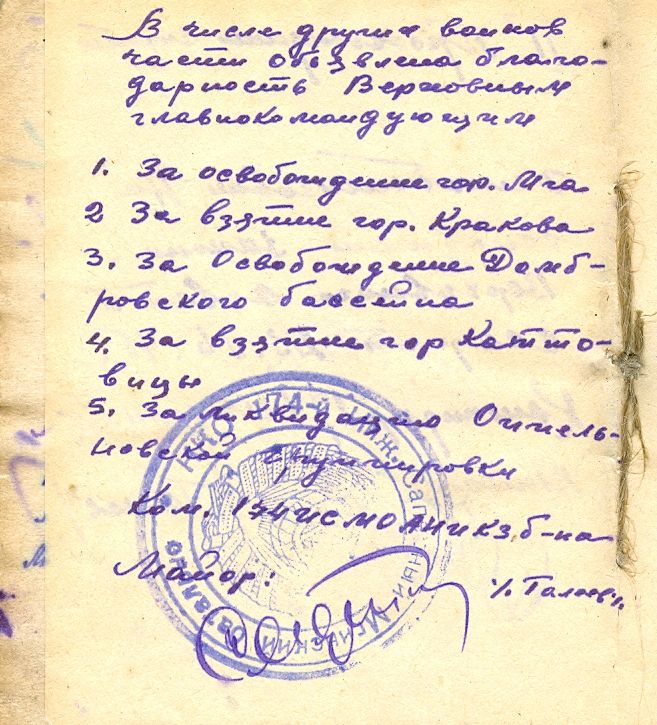 В числе других воинов
части объявлена благо-
дарность Верховным
главнокомандующим
1. За освобождение гор. Мга
2 За взятие гор. Кракова
3. За Освобождение Домб-
ровского бассейна
4. За взятие гор Катто-
вицы
5. За ликвидацию Оппель-
новской группировки
Ком.
Майор:
НКО 174-й